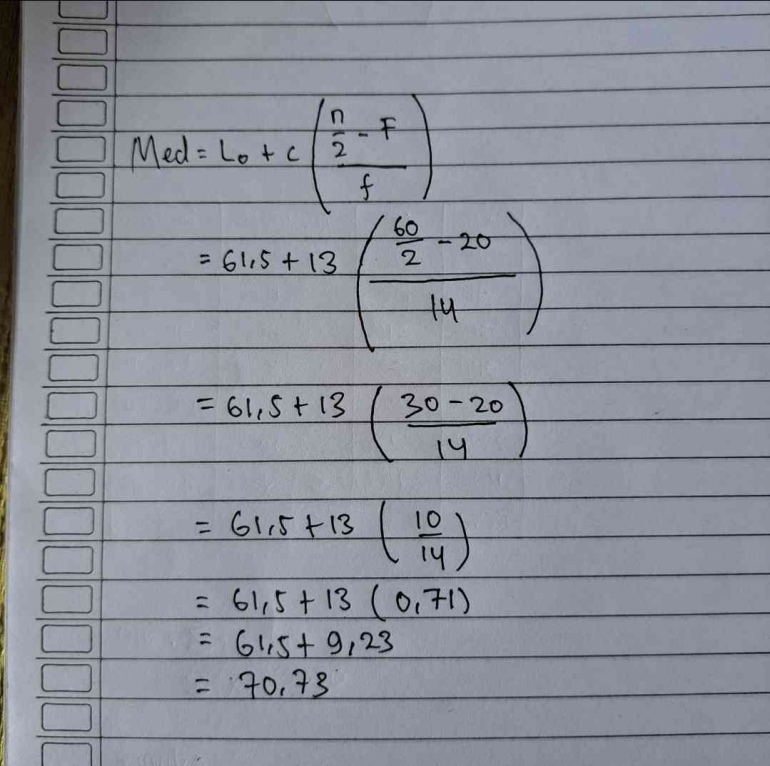 Med = Lo + c ( (n/2 - F) / f )
= 61,5 + 13 ( (60/2 - 20) / 14 )
= 61,5 + 13 ( (30 - 20) / 14 )
= 61,5 + 13 ( 10/14 )
= 61,5 + 13 (0,71)
= 61,5 + 9,23
= 70,73